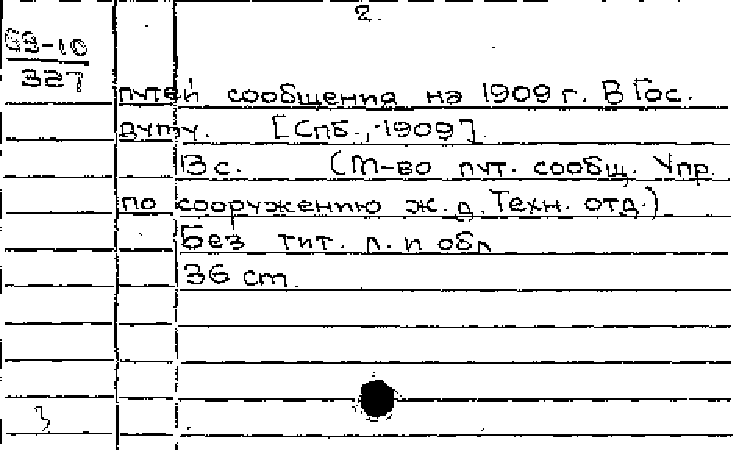 2.
69-10
327
путей сообщения на 1909 г. В Гос.
думу. [Спб., 1909].
13 с. (М-во пут. сообщ. Упр.
по сооружению ж. д. Техн. отд.)
Без тит. л. и обл
36 cm.
3